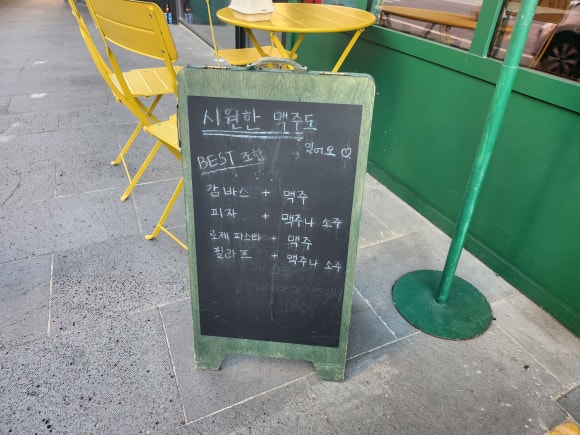 시원한 맥주도
있어요 ♡
BEST 조합
감바스 + 맥주
피자 + 맥주나 소주
로제 파스타 + 맥주
필라프 + 맥주나 소주